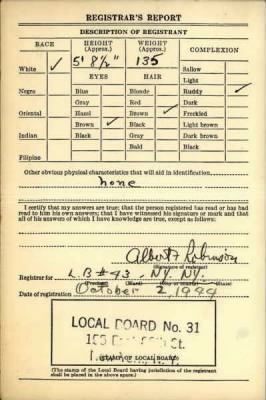 REGISTRAR'S REPORT
DESCRIPTION OF REGISTRANT
RACE HEIGHT (Approx.) WEIGHT (Approx.) COMPLEXION
White ✓ 5' 8½" 135 Sallow
EYES HAIR Light
Negro Blue Blonde Ruddy ✓
Gray Red ✓ Dark
Oriental Hazel Brown Freckled
Brown ✓ Black Light brown
Indian Black Gray Dark brown
Bald Black
Filipino
Other obvious physical characteristics that will aid in identification
None
I certify that my answers are true; that the person registered has read or has had
read to him his own answers; that I have witnessed his signature or mark and that
all of his answers of which I have knowledge are true, except as follows:
Albert Robinson
(Signature of registrar)
Registrar for L.B #43, N.Y. N.Y.
(Precinct) (City or county) (State)
Date of registration October 2, 1944
LOCAL BOARD No. 31
St.
(STAMP OF LOCAL BOARD)
(The stamp of the Local Board having jurisdiction of the registrant
shall be placed in the above space.)